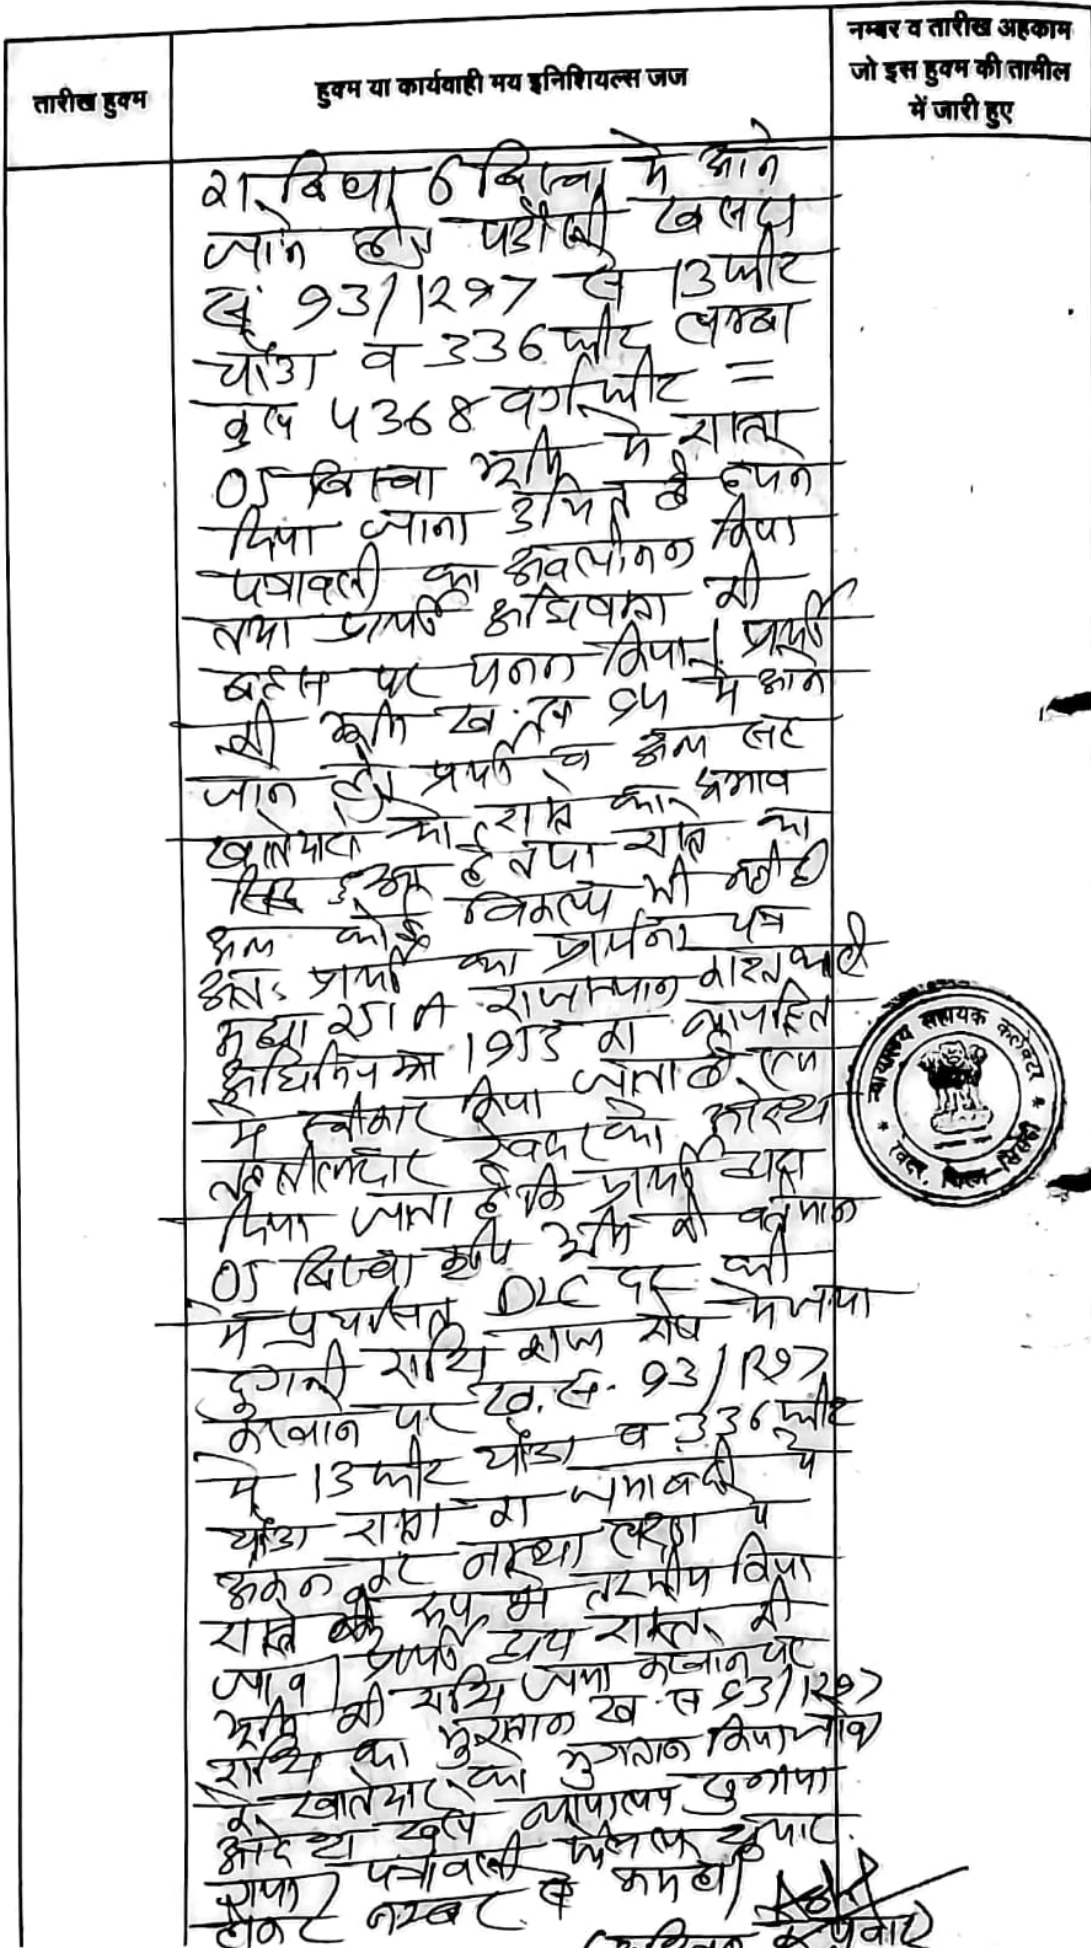 तारीख हुक्म
हुक्म या कार्यवाही मय इनिशियल्स जज
नम्बर व तारीख अहकाम
जो इस हुक्म की तामील
में जारी हुए
21 बिघा 6 बिस्वा मे आने
जाने हेतु पडौसी खसरा
सं 93/1297 से 13 फीट
चौडा व 336 फीट लम्बा
कुल 4368 वर्गफीट =
05 बिस्वा भूमि मे रास्ता
दिया जाना उचित है हमने
पत्रावली का अवलोकन किया
तथा प्रार्थी अधिवक्ता की
बहस पर मनन किया। प्रार्थी
की भूमि ख. सं 94 मे आने
जाने हेतु प्रार्थी व अन्य सह
खातेदारो को रास्ते का अभाव
सिद्ध हुआ है तथा रास्ते का
अन्य कोई विकल्प भी नही है
अतः प्रार्थी का प्रार्थना पत्र
251 A राजस्थान काश्तकारी
अधिनियम 1955 का न्यायहित
मे स्वीकार किया जाता है एवं
तहसीलदार रेवदर को आदेश
दिया जाता है कि प्रार्थी द्वारा
05 बिस्वा भूमि की वर्तमान
मे प्रचलित DLC दर की
दुगनी राशि राज कोष मे जमा
करवाने पर ख. सं. 93/1297
मे 13 फीट चौडा व 336 फीट
चौडा रास्ता का जमाबंदी मे
अंकन कर नक्शा ट्रेस मे
रास्ते के रूप मे तरमीम किया
जावे। प्रार्थी द्वारा रास्ते की
भूमि की राशि जमा करवाने पर
राशि का भुगतान ख सं 93/1297
के खातेदार को भुगतान किया जावे
आदेश खुले न्यायालय सुनाया
गया पत्रावली फैसल शुमार
होकर नम्बर से कम हो।
न्यायालय सहायक कलेक्टर
रेवदर, जिला सिरोही